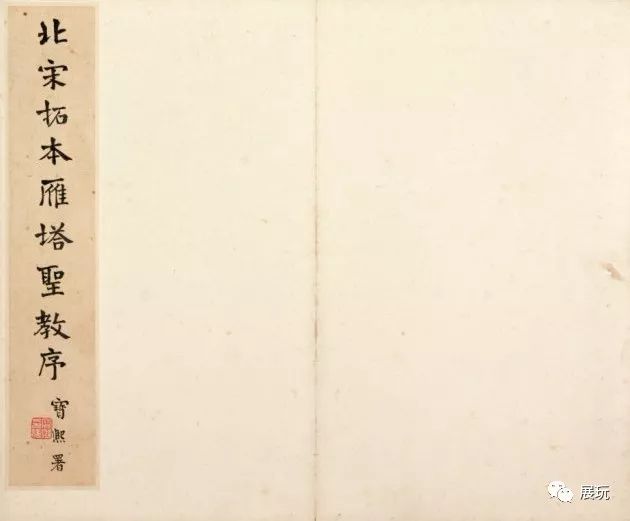 北宋拓本雁塔聖教序
寶熙署
展玩